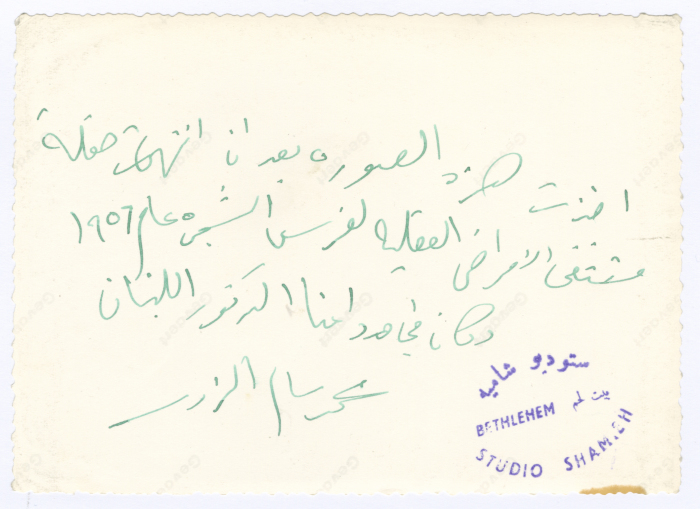 اخذت هذه الصوره بعد ان انتهت حفلة
مستشفى الامراض العقليه لغرس الشجره عام ١٩٥٦
وكان
الدكتور اللبنان
محمد سالم
ستوديو شاميه
بيت لحم
BETHLEHEM
STUDIO SHAMIEH